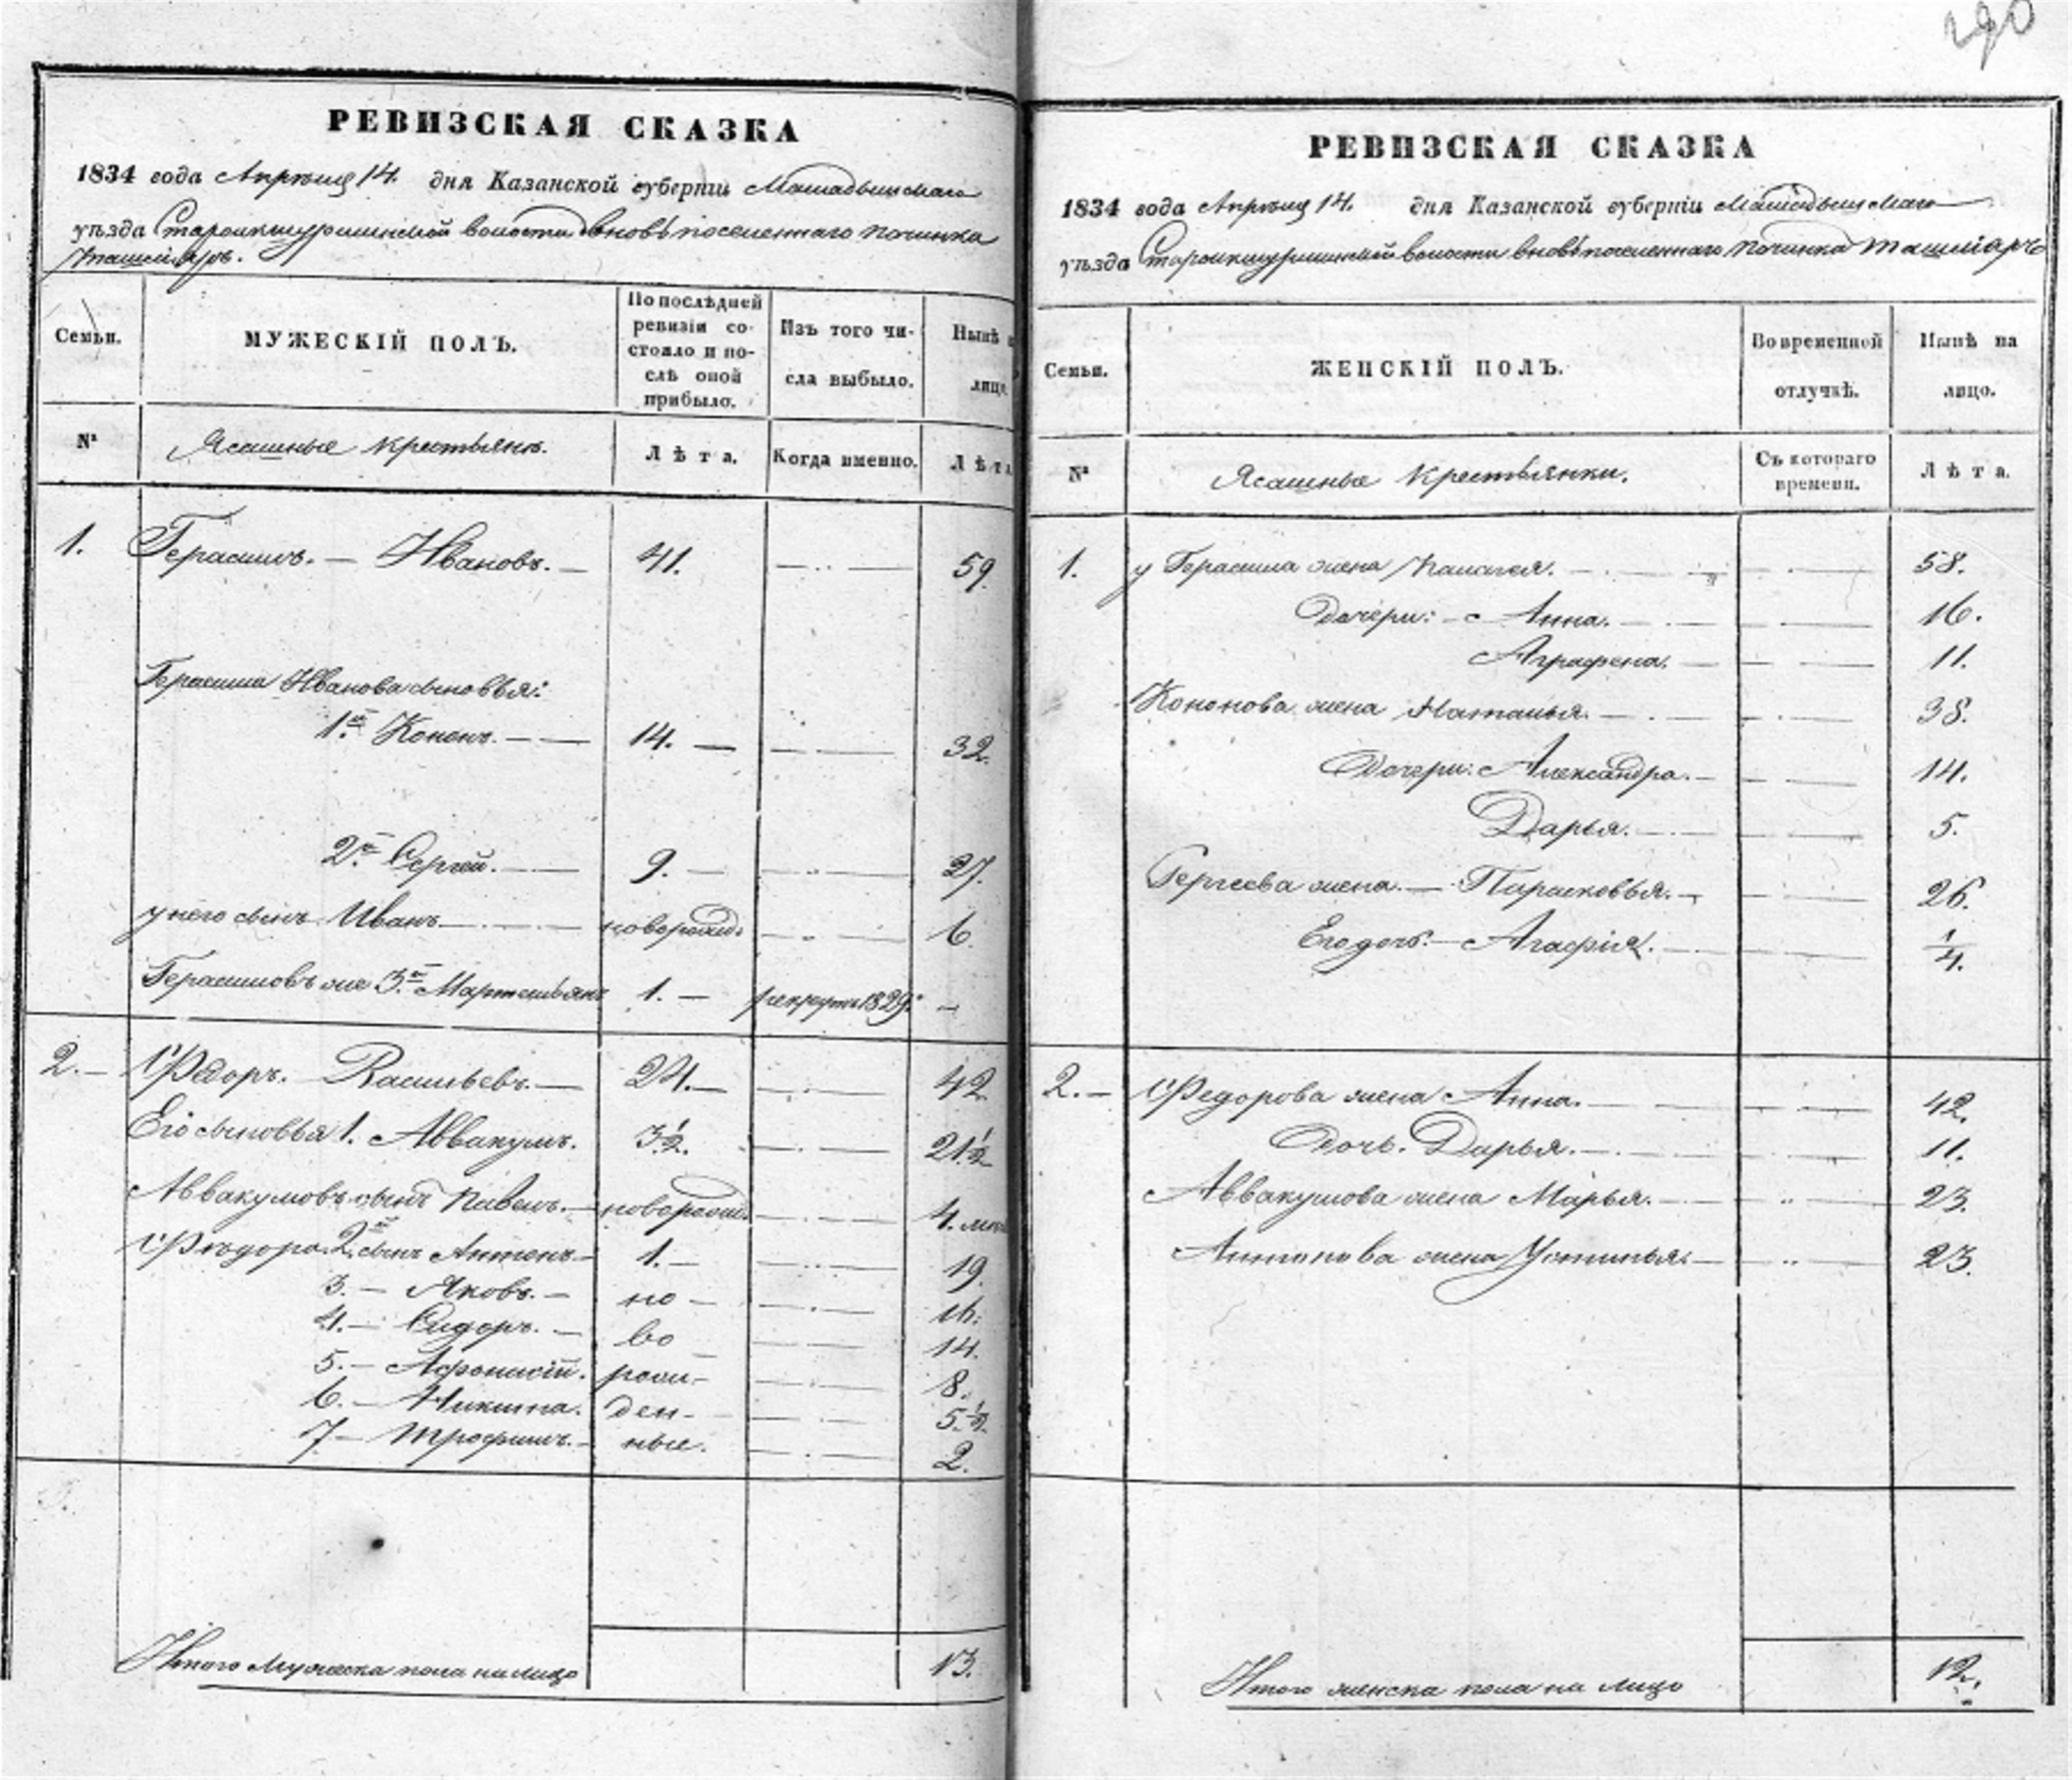 290
РЕВИЗСКАЯ СКАЗКА
1834 года Апрѣля 14. дня Казанской губерніи Мамадышскаго
уѣзда Староикшурминской волости вновь поселеннаго починка
Ташліяръ.
Семьи.
МУЖЕСКІЙ ПОЛЪ.
По послѣдней ревизіи со-
стояло и по-
слѣ оной
прибыло.
Изъ того чи-
сла выбыло.
Нынѣ н
лицо.
№
Ясашные крестьяне.
Лѣта.
Когда именно.
Лѣта
1. Герасимъ. — Ивановъ. — 41. — 59.
Герасима Иванова сыновья:
1й Кононъ. — 14. — 32.
2й Сергѣй. — 9. — 27.
у него сынъ Иванъ — новорожд. — 6.
Герасимовъ же 3й Мартемьянъ 1. — рекрутъ 1829. —
2. — Ѳедоръ. Васильевъ. — 24. — 42
Его сыновья 1. Аввакумъ. 3 1/2. — 21 1/2
Аввакумовъ сынъ Павелъ. — новорожд. — 4. мѣс
Ѳедора 2й сынъ Антонъ — 1. — 19.
3. — Яковъ. — но — 16.
4. — Сидоръ. — во — 14.
5. — Афонасій. рож — 8.
6. — Никита. ден — 5 1/2.
7 — Трофимъ. — ные. — 2.
Итого мужеска пола на лицо 13.
РЕВИЗСКАЯ СКАЗКА
1834 года Апрѣля 14. дня Казанской губерніи Мамадышскаго
уѣзда Староикшурминской волости вновь поселеннаго починка Ташліяръ
Семьи.
ЖЕНСКІЙ ПОЛЪ.
Во временной
отлучкѣ.
Нынѣ на
лицо.
№
Ясашные крестьянки.
Съ котораго
времени.
Лѣта.
1. у Герасима жена Палагея. — 58.
Дочери: — Анна. — 16.
Аграфена. — 11.
Кононова жена Наталья. — 38.
Дочери: Александра. — 14.
Дарья. — 5.
Сергеева жена. — Парасковья. — 26.
Его дочь. — Агафія. — 1/4.
2. — Ѳедорова жена Анна. — 42.
Дочь. Дарья. — 11.
Аввакумова жена Марья. — 23.
Антонова жена Устинья. — 23.
Итого женска пола на лицо 12.